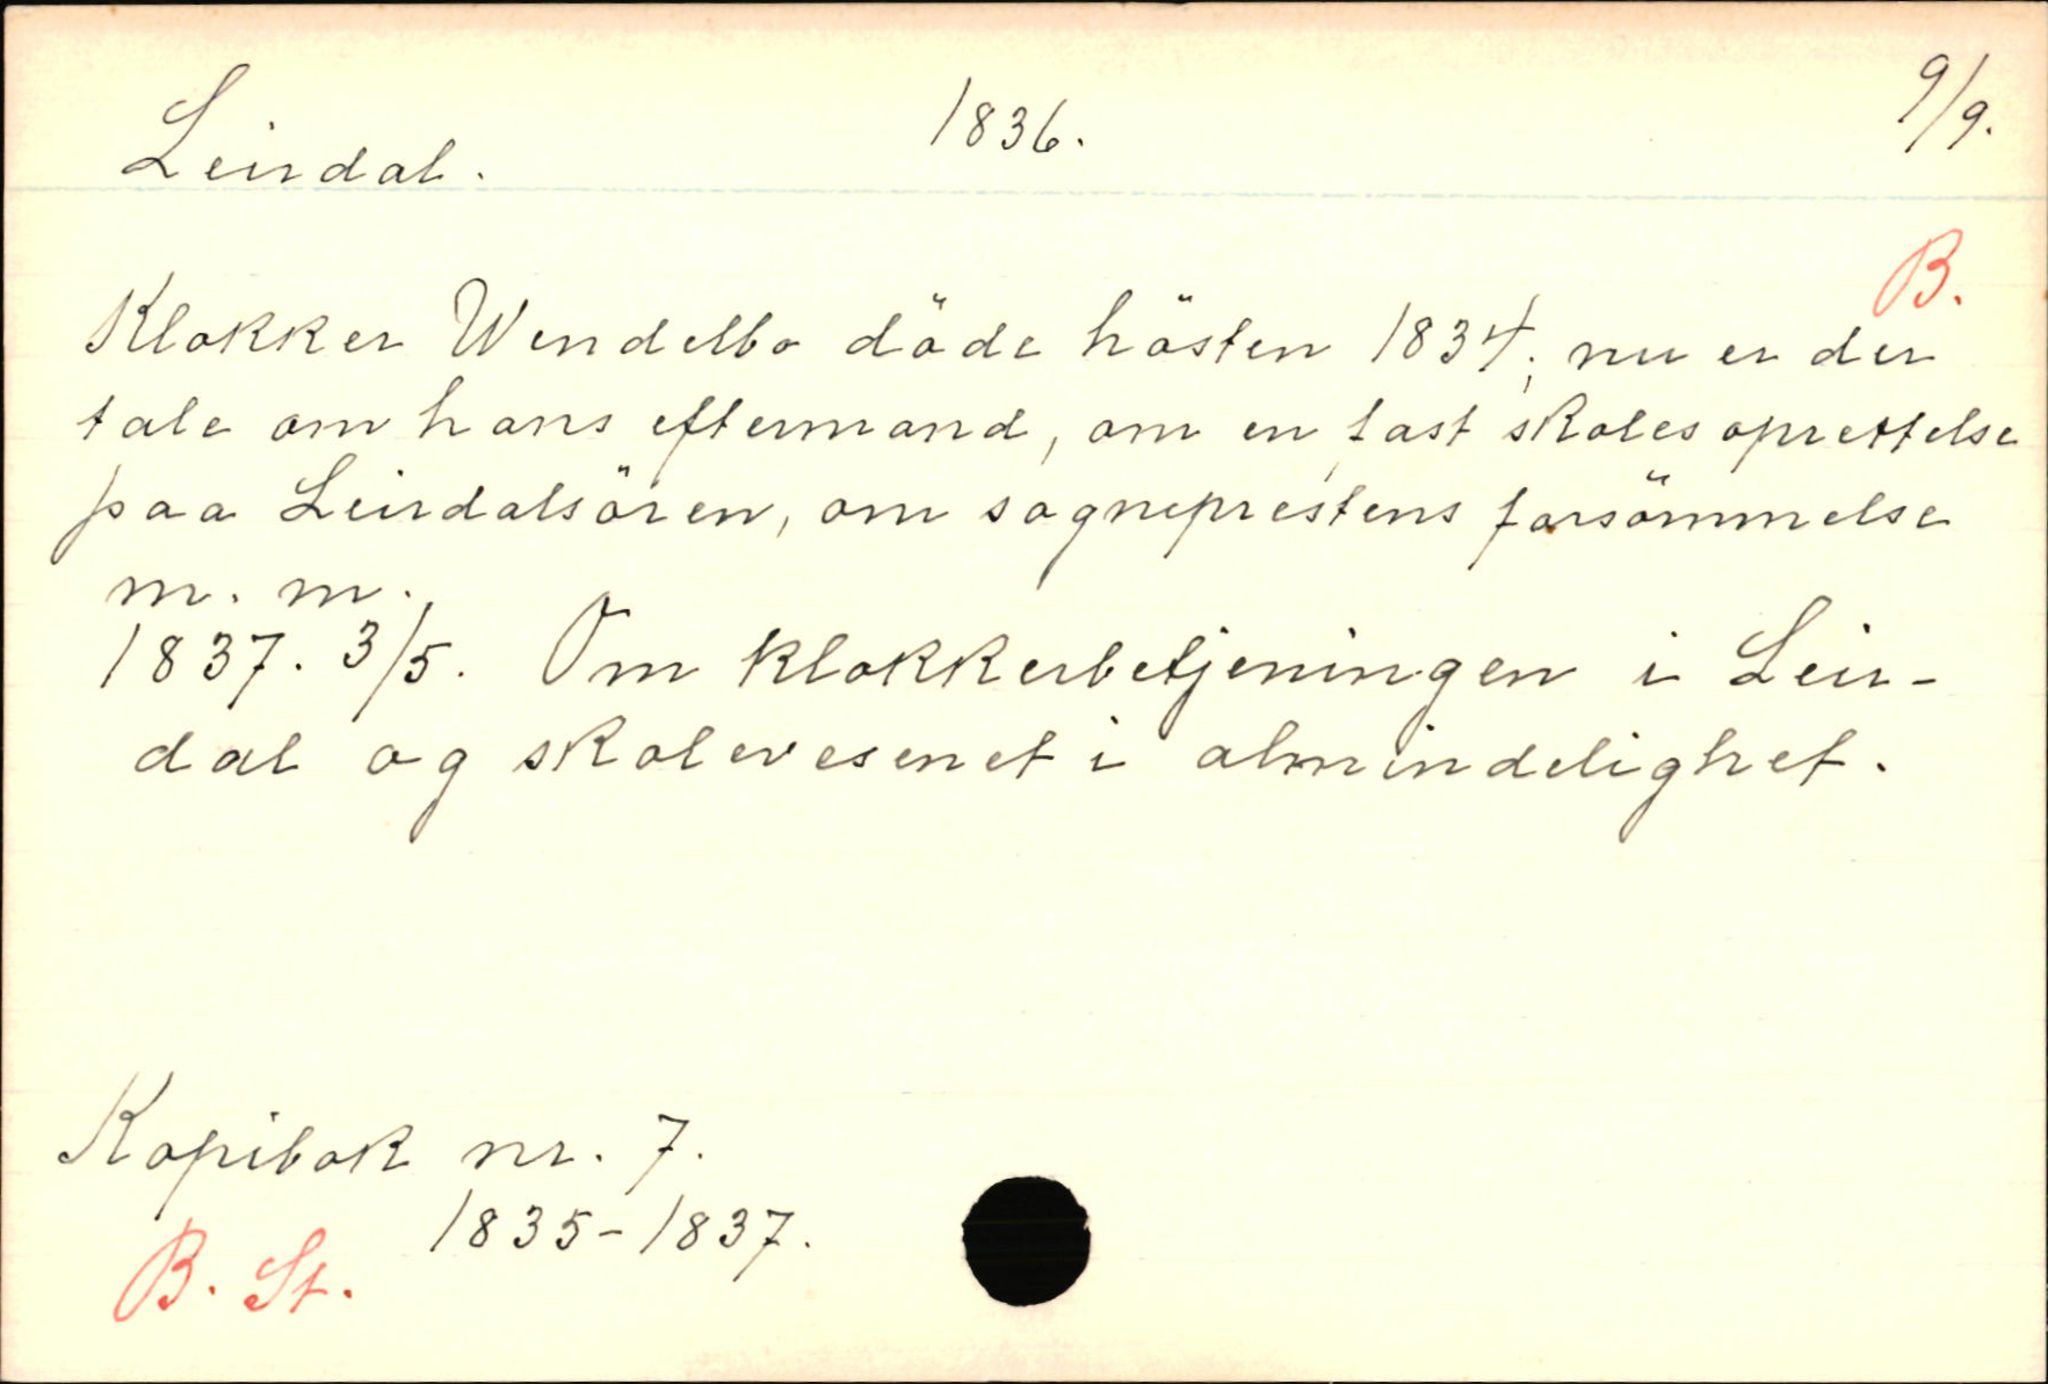 Leirdal. 1836. 9/9.
B.
Klokker Wendelbo döde hösten 1834; nu er der
tale om hans eftermand, om en fast skoles oprettelse
paa Leirdalsören, om sogneprestens forsömmelse
m. m.
1837. 3/5. Om klokkerbetjeningen i Leir-
dal og skolevesenet i almindelighet.
Kopibok nr. 7.
1835-1837.
B. St.